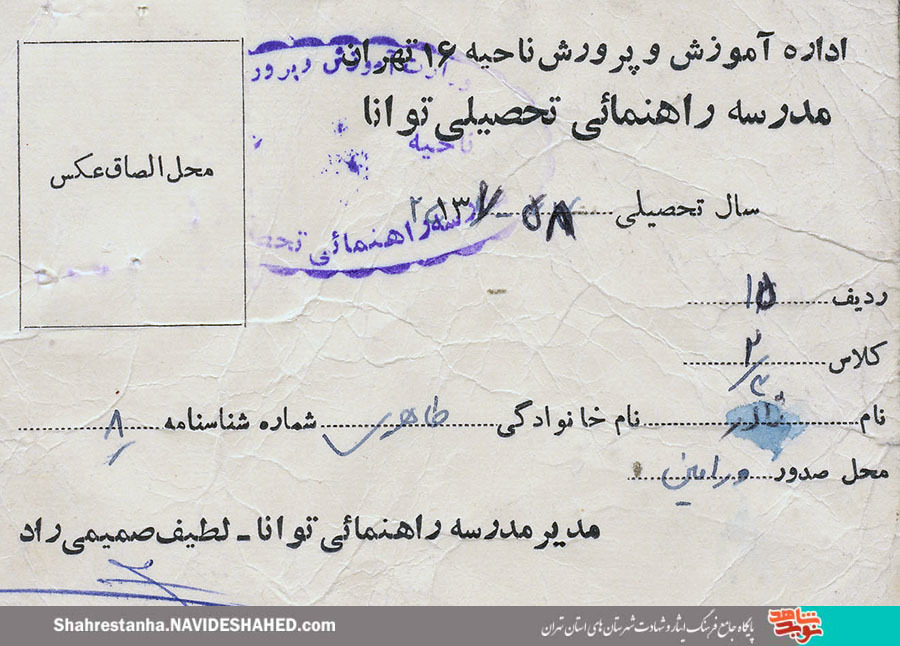 اداره آموزش و پرورش ناحیه ۱۶ تهران
مدرسه راهنمائی تحصیلی توانا
محل الصاق عکس
ناحیه
سال تحصیلی ۵۸-۱۳۵۷
ردیف ۱۵
کلاس ۲/۳
نام نام خانوادگی طاهری شماره شناسنامه ۸
محل صدور ورامین
مدیر مدرسه راهنمائی توانا - لطیف صمیمی راد
Shahrestanha.NAVIDESHAHED.com
پایگاه جامع فرهنگ ایثار و شهادت شهرستان های استان تهران
نوید شاهد